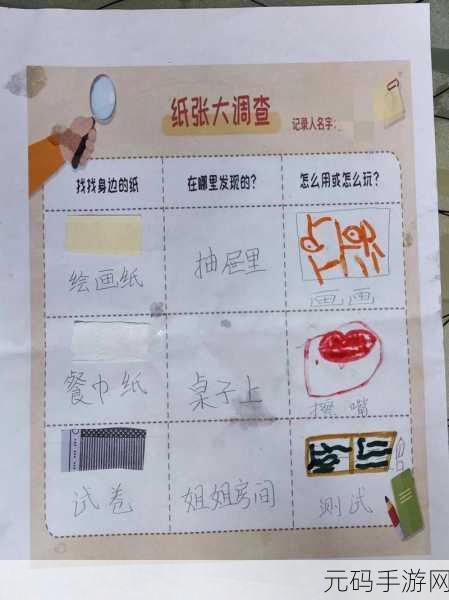 纸张大调查
记录人名字:
找找身边的纸
在哪里发现的?
怎么用或怎么玩?
绘画纸
抽屉里
画画
餐巾纸
桌子上
擦嘴
试卷
姐姐房间
测试
元码手游网